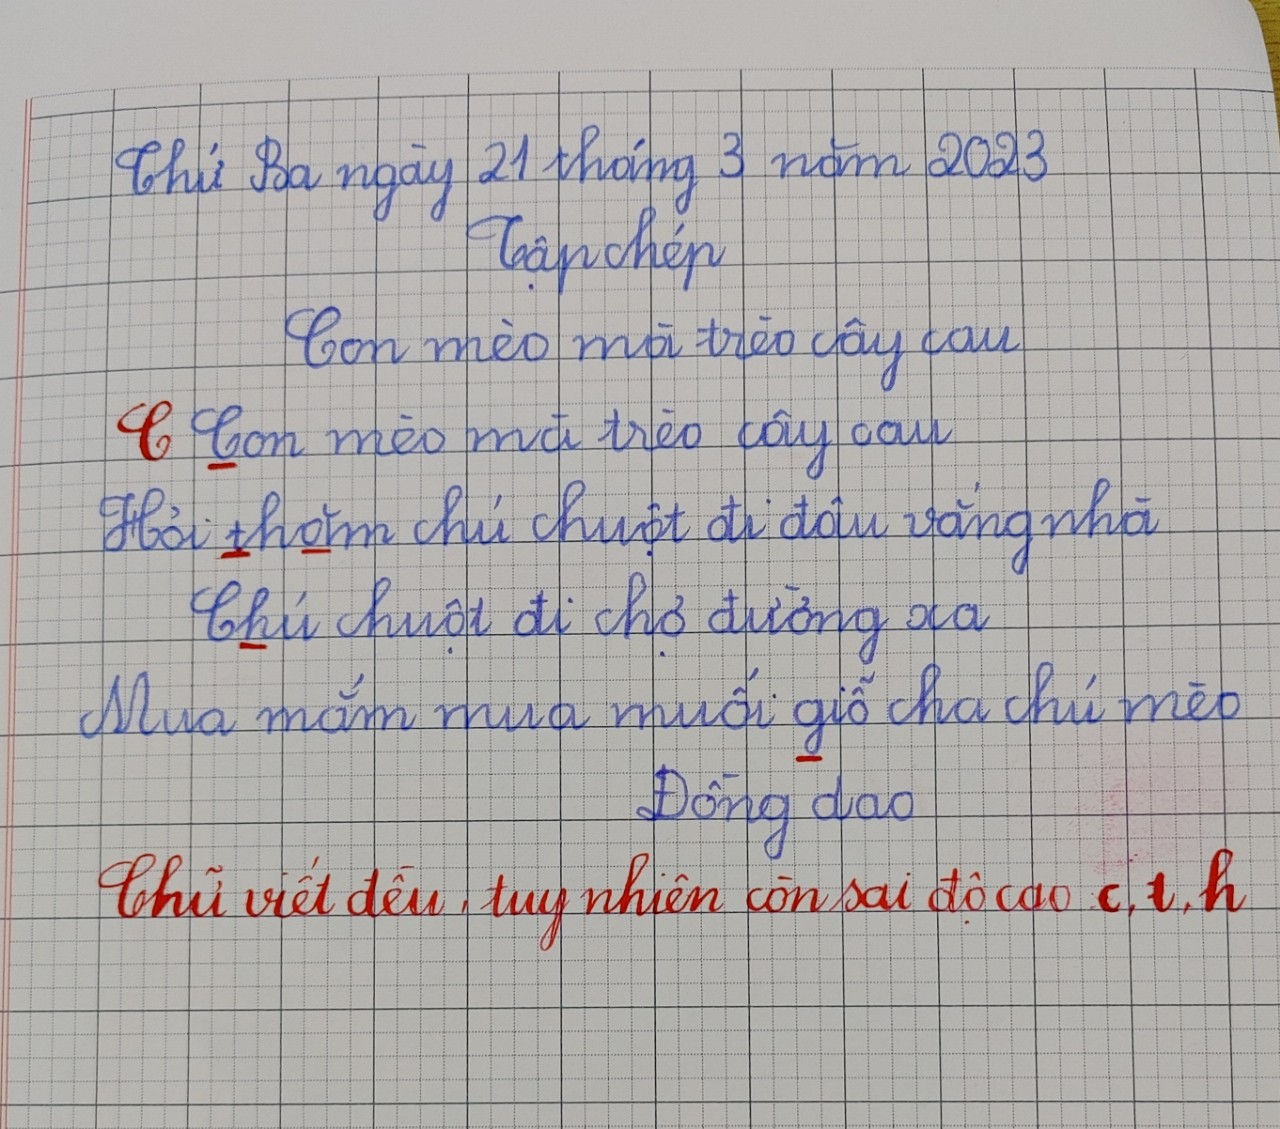 Thứ Ba ngày 21 tháng 3 năm 2023
Tập chép
Con mèo mà trèo cây cau
C Con mèo mà trèo cây cau
Hỏi thăm chú chuột đi đâu vắng nhà
Chú chuột đi chợ đường xa
Mua mắm mua muối giỗ cha chú mèo
Đồng dao
Chữ viết đều, tuy nhiên còn sai độ cao c, t, h